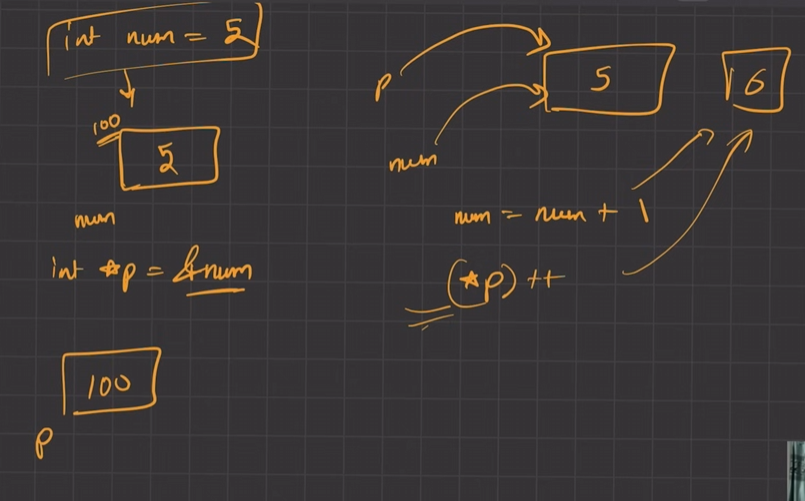 int num = 5
100
5
num
int *p = &num
100
p
p
5
6
num
num = num + 1
(*p)++